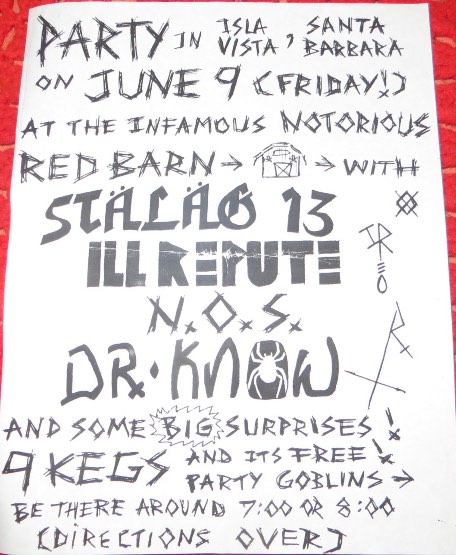 PARTY IN ISLA VISTA, SANTA BARBARA
ON JUNE 9 (FRIDAY!)
AT THE INFAMOUS NOTORIOUS
RED BARN → → WITH
STÄLÄG 13
ILL REPUTE
N.O.S.
DR. KNOW
AND SOME BIG SURPRISES!
9 KEGS AND ITS FREE!
PARTY GOBLINS →
BE THERE AROUND 7:00 OR 8:00
[DIRECTIONS OVER]